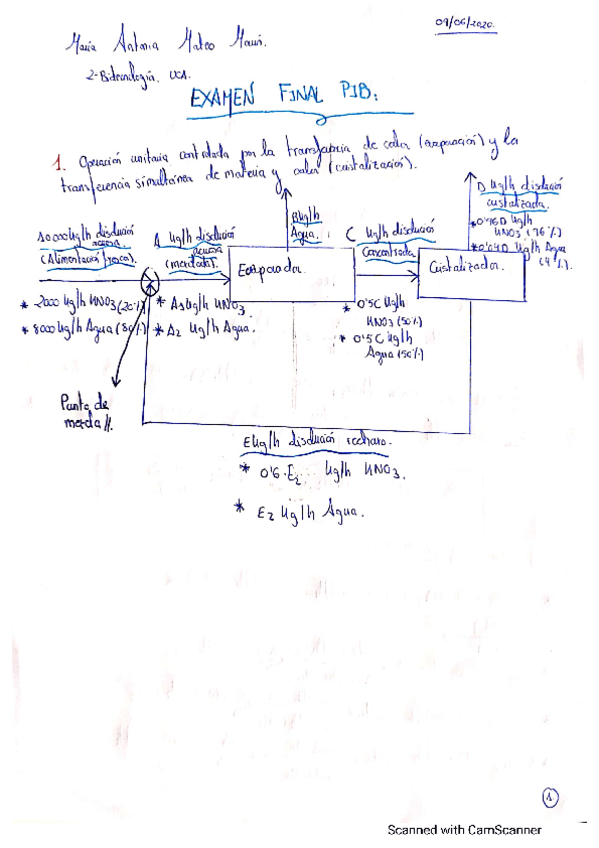 María Antonia Mateo Mauri.
09/06/2020.
2-Biotecnología. UCA.
EXAMEN FINAL PIB:
1. Operación unitaria controlada por la transferencia de calor (evaporación) y la
transferencia simultánea de materia y calor (cristalización).
10000 Kg/h disolución
acuosa
(Alimentación fresca).
A Kg/h disolución
acuosa
(mezclada).
B Kg/h
Agua.
C Kg/h disolución
Concentrada
D Kg/h disolución
cristalizada.
* 0'96D Kg/h
KNO3 (96%)
* 0'04D Kg/h Agua
(4%).
Evaporador.
Cristalizador.
* 2000 Kg/h KNO3 (20%)
* 8000 Kg/h Agua (80%)
* A1 Kg/h KNO3.
* A2 Kg/h Agua.
* 0'5C Kg/h
KNO3 (50%)
* 0'5C Kg/h
Agua (50%)
Punto de
mezcla //.
E Kg/h disolución rechazo.
* 0'6·E2 Kg/h KNO3.
* E2 Kg/h Agua.
1
Scanned with CamScanner